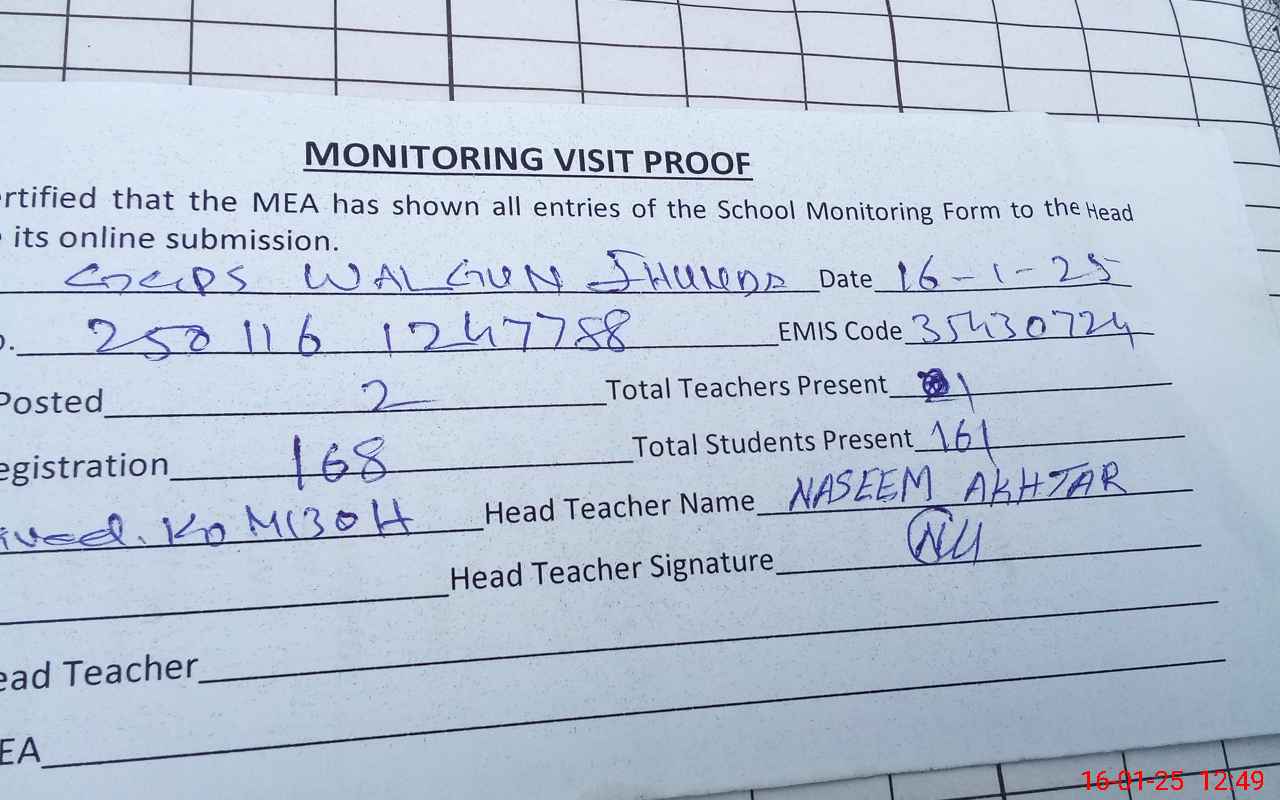 MONITORING VISIT PROOF
rtified that the MEA has shown all entries of the School Monitoring Form to the Head
its online submission.
WALGUN JHUNDA Date 16-1-25
250116 1247758 EMIS Code 35430724
Posted 2 Total Teachers Present 1
egistration 168 Total Students Present 161
Head Teacher Name NASEEM AKHTAR
Head Teacher Signature
ead Teacher
EA
16-01-25 12:49